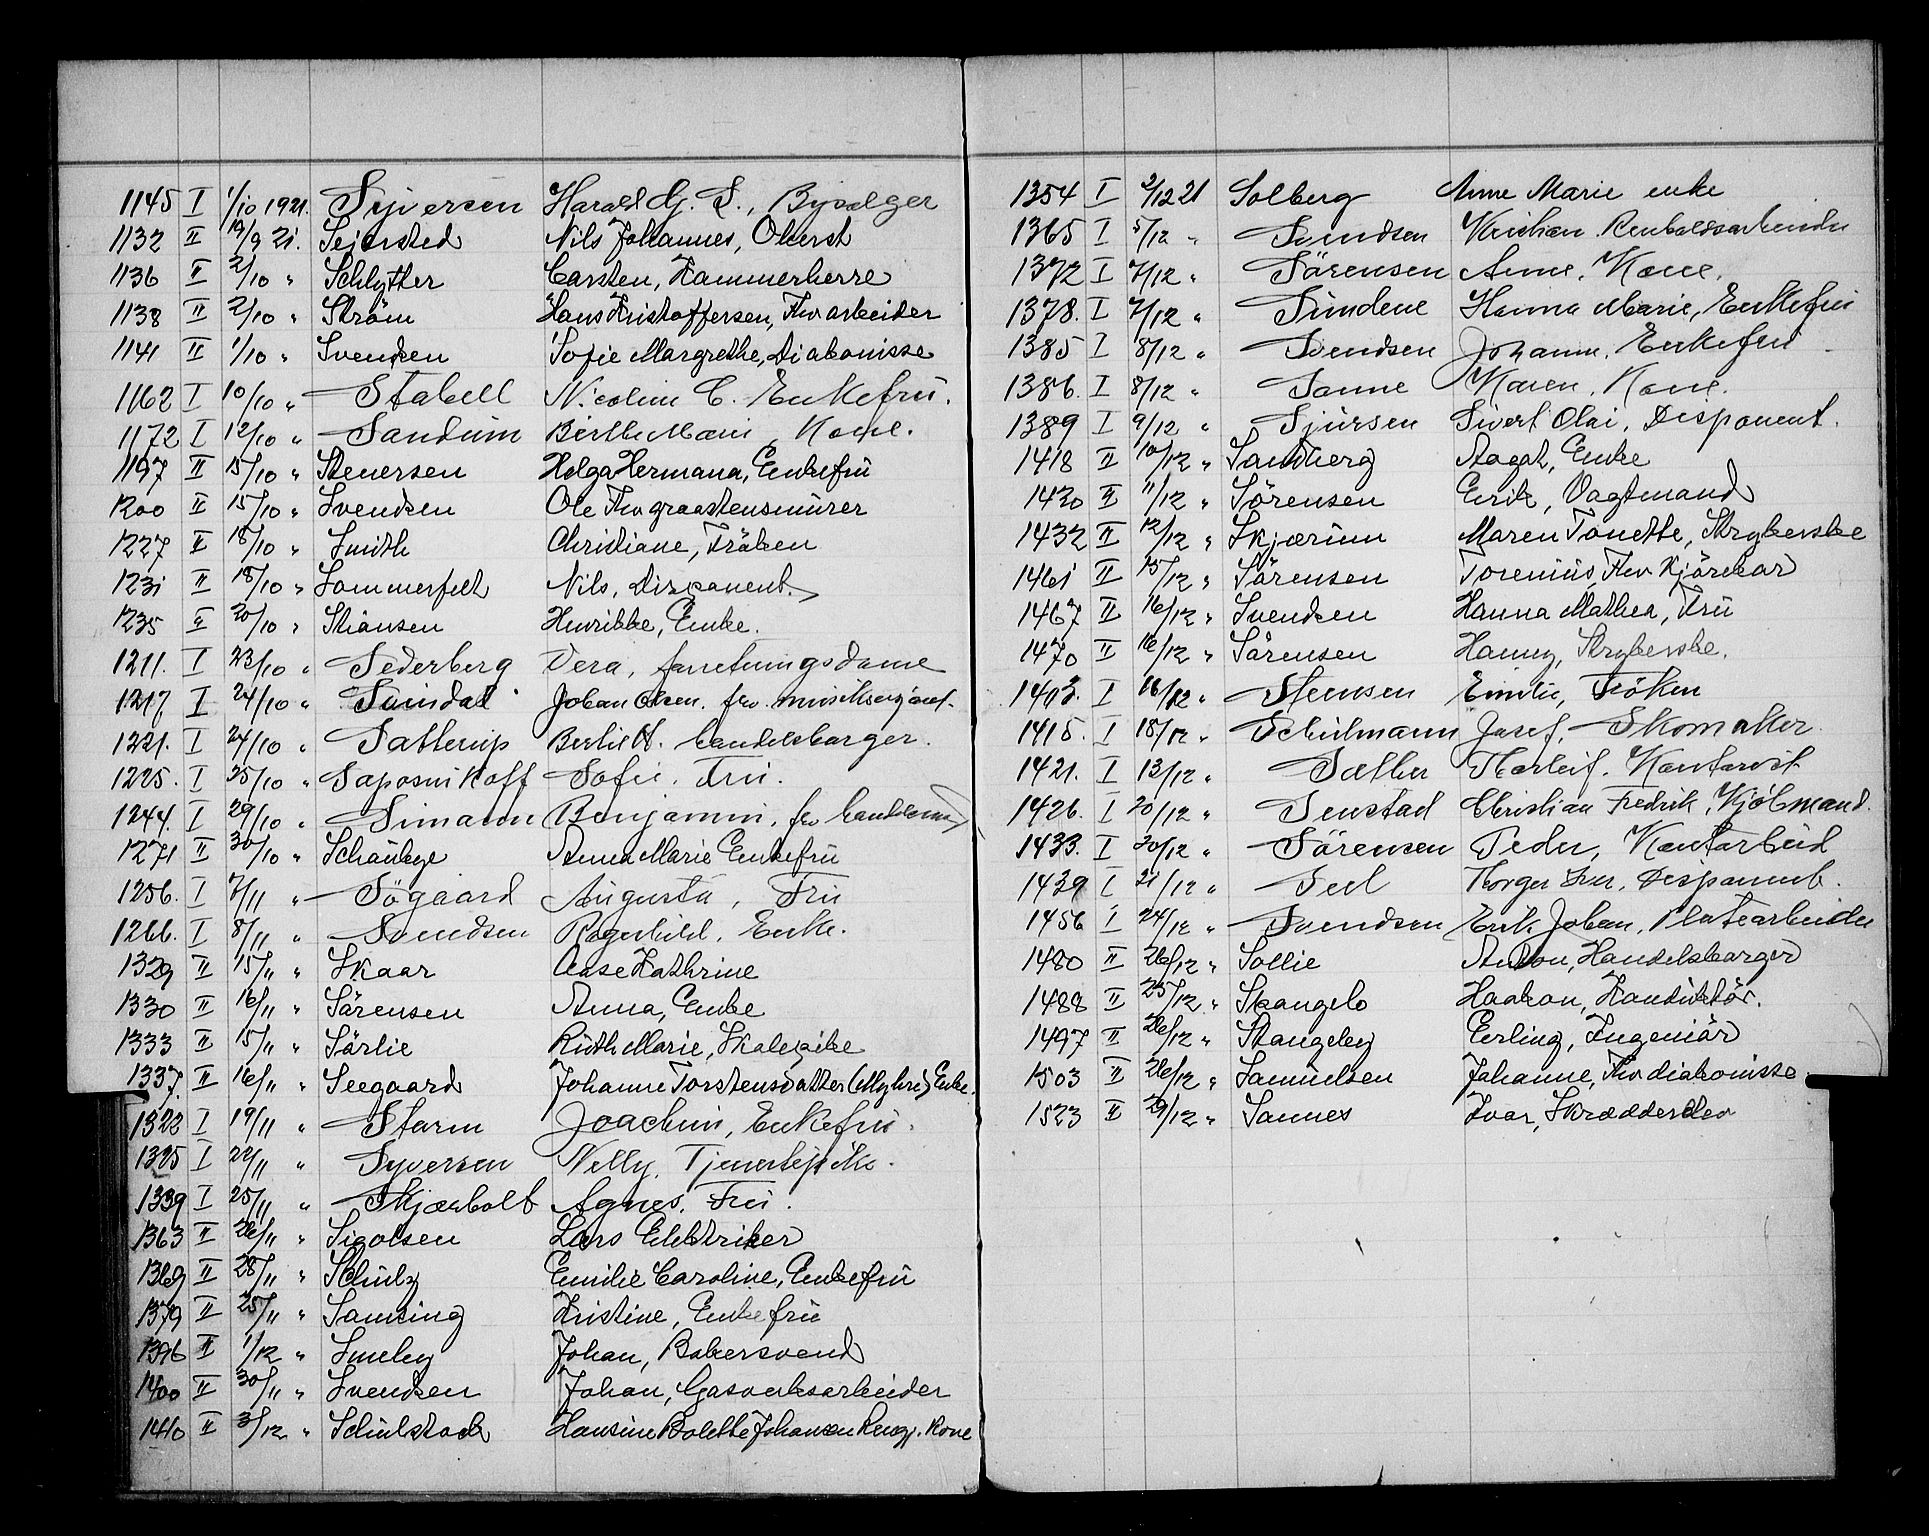 1145 I 1/10 1921. Syversen Harald G. S., Byselger
1132 II 19/9 21. Sejersted Nils Johannes, Oberst
1136 II 2/10 " Schlytter Carsten, Kammerherre
1138 II 2/10 " Ström Hans Kristoffersen, Fhv arbeider
1141 II 1/10 " Svendsen Sofie Margrethe, Diakonisse
1162 I 10/10 " Stabell Nicoline C. Enkefru.
1172 I 12/10 " Sandum Berthe Marie, Kone.
1197 II 15/10 " Stenersen Helga Hermana, Enkefru
1200 II 15/10 " Svendsen Ole Fhv graastensmurer
1227 II 18/10 " Smith Christiane, Fröken
1231 II 18/10 " Sommerfelt Nils, Disponent.
1235 II 20/10 " Stiansen Henrikke, Enke.
1211. I 23/10 " Sederberg Vera, forretningsdame
1217 I 24/10 " Sundal Johan Olsen. fhv. musiksergeant.
1221. I 24/10 " Satterup Bertel H. handelsborger.
1225. I 25/10 " Saposnikoff Sofie. Fru.
1244. I 29/10 " Simann Benjamin, fhv
1271 II 30/10 " Anna Marie Enkefru
1256. I 7/11 " Sögaard Augusta, Fru
1266. I 8/11 " Svendsen Ragnhild, Enke.
1329 II 15/11 " Skaar Aase Kathrine
1330 II 16/11 " Sörensen Anna, Enke
1333 II 15/11 " Sörlie Ruth Marie, Skolepike
1337. II 16/11 " Seegaard Johanne Torstensdatter (Myhre) Enke.
1322 I 19/11 " Storm Joachim, Enkefru.
1325 I 22/11 " Syversen Nelly, Tjenestepike.
1339 I 25/11 " Skjærholt Agnes. Fru.
1363 II 26/11 " Sigolsen Lars Elektriker
1369 II 28/11 " Schulz Emilie Caroline, Enkefru
1379 II 25/11 " Samsing Kristine, Enkefru
1396 II 1/12 " Smeby Johan, Bakersvend
1400 II 30/11 " Svendsen Johan, Gasverksarbeider
1410 II 3/12 " Schulstock Hansine Bolette Johansen Rengj. kone
1354 I 2/12 21 Solberg Anne Marie enke
1365 I 5/12 " Svendsen Kristian. Renholdsarbeider
1372 I 7/12 " Sörensen Anne. Kone.
1378. I 7/12 " Sundene Hanna Marie, Enkefru
1385 I 8/12 " Svendsen Johanne, Enkefru
1386. I 8/12 " Sanne Karen. Kone.
1389 I 9/12 " Sjursen Sivert Olai, Disponent.
1418 II 10/12 " Sandberg Aagot, Enke
1420 II 11/12 " Sörensen Erik, Vagtmand
1432 II 12/12 " Skjærum Maren Tonette, Strykerske
1461 II 15/12 " Sörensen Torenius, Fhv Kjörekar
1467 II 16/12 " Svendsen Hanna Mathea, Fru
1470 II 16/12 " Sörensen Hanny, Strykerske.
1403. I 16/12 " Stensen Emilie, Fröken
1415. I 18/12 " Schulmann Josef, Skomaker
1421. I 13/12 " Sæther Thorleif. Kontorist
1426. I 20/12 " Senstad Christian Fredrik, Kjöbmand.
1433. I 20/12 " Sörensen Peder, Kontorbud
1439 I 21/12 " Seel Thorger Iver, Disponent.
1456 I 24/12 " Svendsen Erik Johan, Platearbeider
1480 II 26/12 " Sollie Anton, Handelsborger
1488 II 25/12 " Skangelo Haakon, Konduktör.
1497 II 26/12 " Stangeby Erling, Ingeniör
1503 II 26/12 " Samuelsen Johanne, Fhv diakonisse
1523 II 29/12 " Sannes Ivar, Skrædderelev